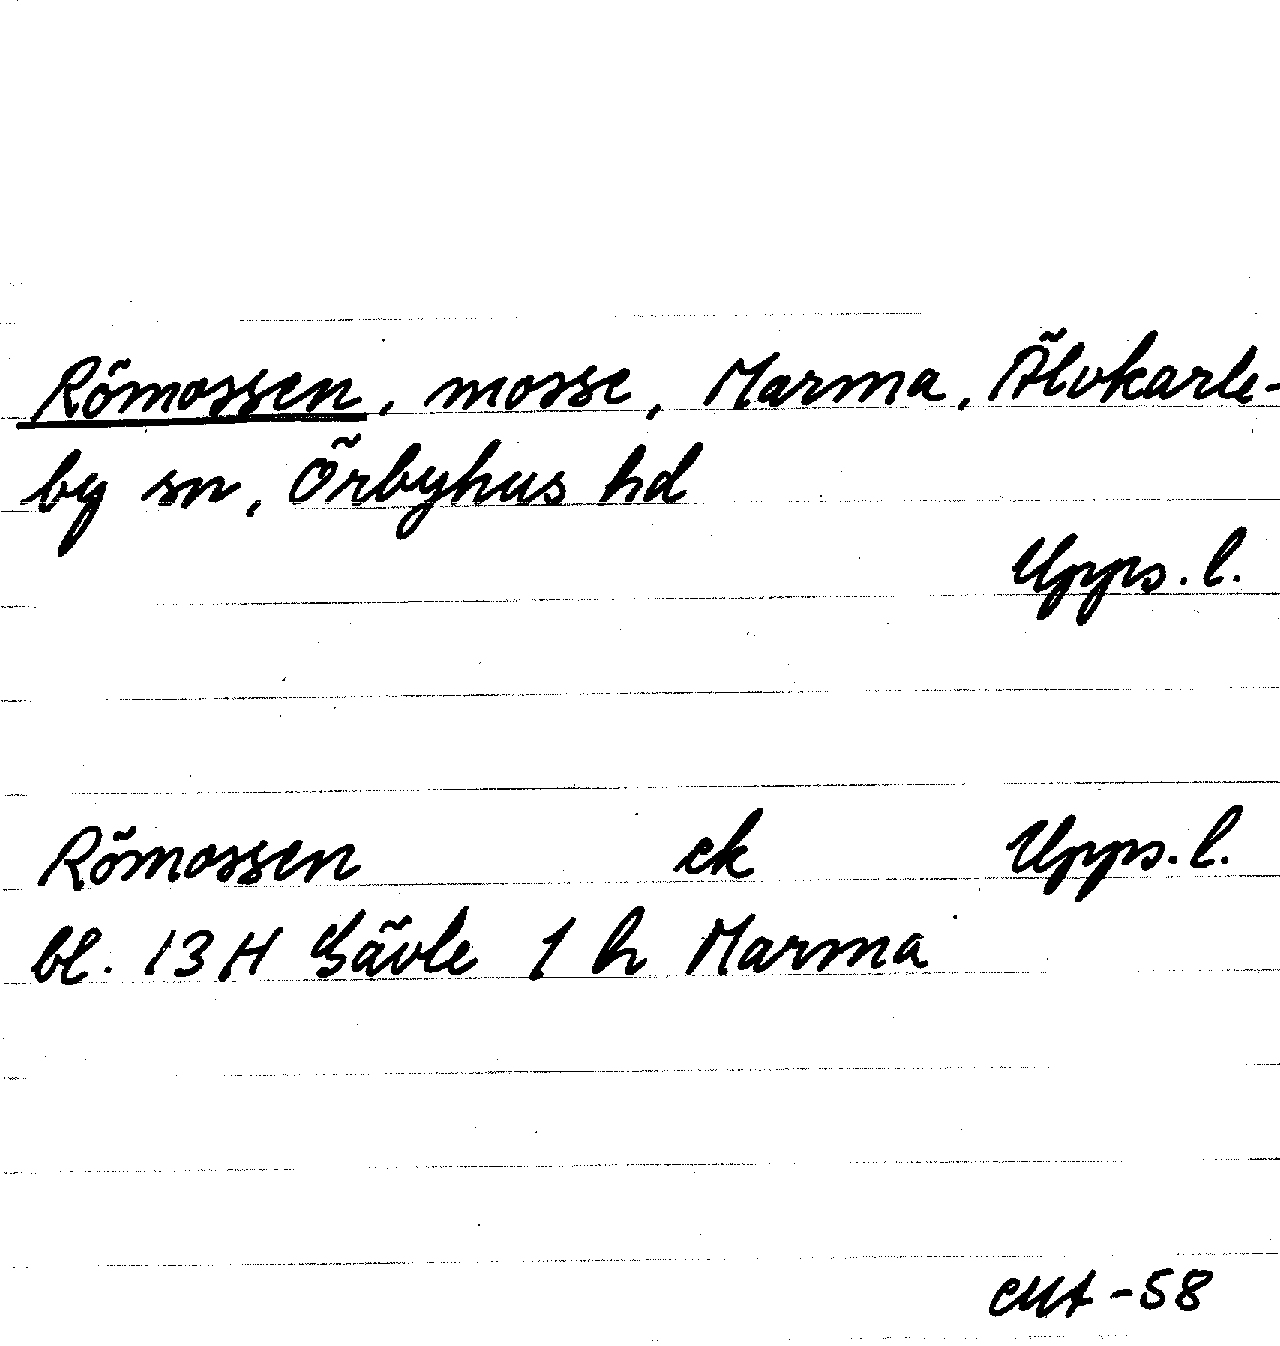 Römossen, mosse, Marma, Älvkarle-
by sn, Örbyhus hd
Upps. l.
Römossen ek Upps. l.
bl. 13H Gävle 1 h Marma
-58